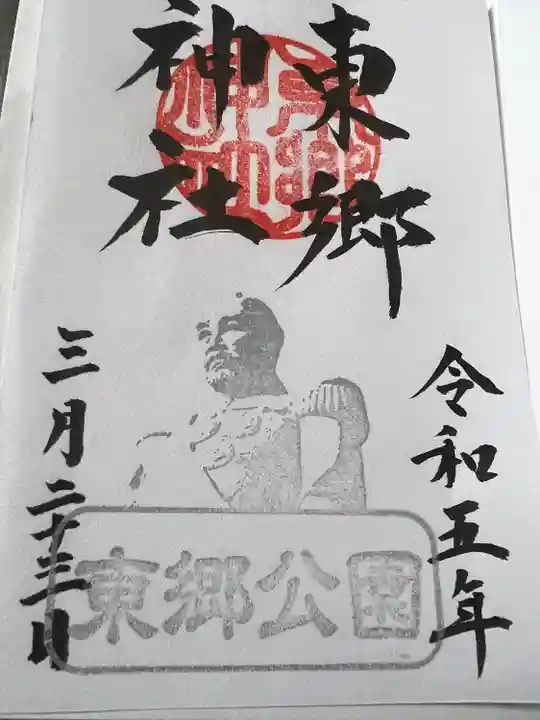 東郷
神社
東郷神社
令和五年
三月二十三日
東郷公園